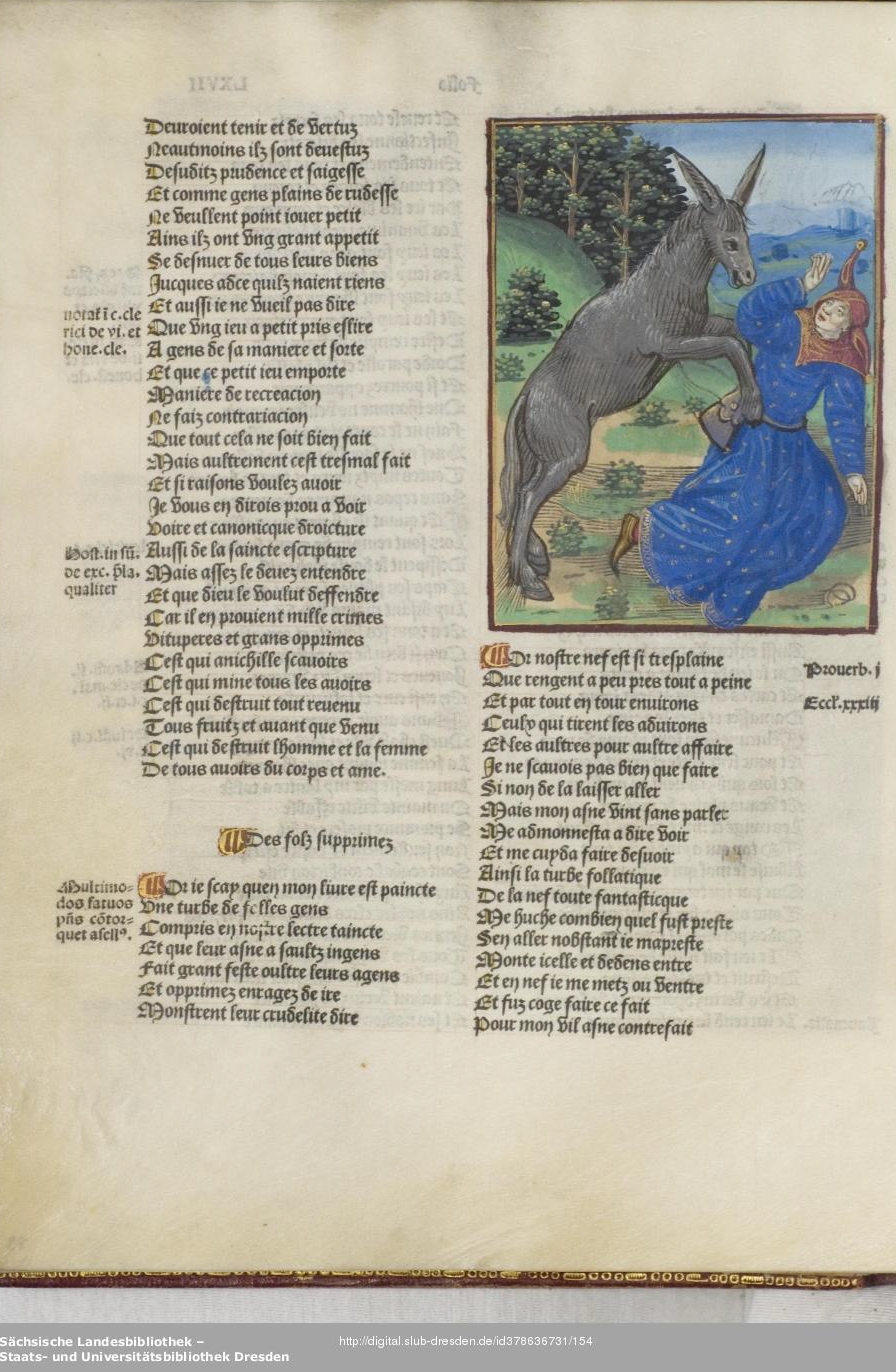 Deuroient tenir et de vertuz
Neautmoins ilz sont deuestuz
Desuditz prudence et saigesse
Et comme gens plains de rudesse
Ne veullent point iouer petit
Ains ilz ont vng grant appetit
Se desnuer de tous leurs biens
Jucques adce quilz naient riens
Et aussi ie ne vueil pas dire
Que vng ieu a petit pris eslire
A gens de sa maniere et sorte
Et que ce petit ieu emporte
Maniere de recreacion
Ne faiz contrariacion
Que tout cela ne soit bien fait
Mais aultrement cest tresmal fait
Et si raisons voulez auoir
Je vous en dirois prou a voir
Voire et canonicque droicture
Aussi de la saincte escripture
Mais assez le deuez entendre
Et que dieu le voulut deffendre
Car il en prouient mille crimes
Vituperes et grans opprimes
Cest qui anichille scauoirs
Cest qui mine tous les auoirs
Cest qui destruit tout reuenu
Tous fruitz et auant que venu
Cest qui destruit lhomme et la femme
De tous auoirs du corps et ame.
notat i c. cle
rici de vi. et
hone. cle.
Host. in sū.
de exc. p̄la.
qualiter
Des folz supprimez
Multimo-
dos fatuos
pñs cōtor-
quet asellꝰ.
Or ie scay quen mon liure est paincte
Vne turbe de folles gens
Compris en nostre lectre taincte
Et que leur asne a saultz ingens
Fait grant feste oultre leurs agens
Et opprimez enragez de ire
Monstrent leur crudelite dire
Or nostre nef est si tresplaine
Que rengent a peu pres tout a peine
Et par tout en tour enuirons
Ceulx qui tirent les aduirons
Et les aultres pour aultre affaire
Je ne scauois pas bien que faire
Si non de la laisser aller
Mais mon asne vint sans parler
Me admonnesta a dire voir
Et me cuyda faire desuoir
Ainsi la turbe follatique
De la nef toute fantasticque
Me huche combien quel fust preste
Sen aller nobstant ie mapreste
Monte icelle et dedens entre
Et en nef ie me metz ou ventre
Et fuz coge faire ce fait
Pour mon vil asne contrefait
Prouerb. j
Eccl. xxxiij
Sächsische Landesbibliothek –
Staats- und Universitätsbibliothek Dresden
http://digital.slub-dresden.de/id378636731/154